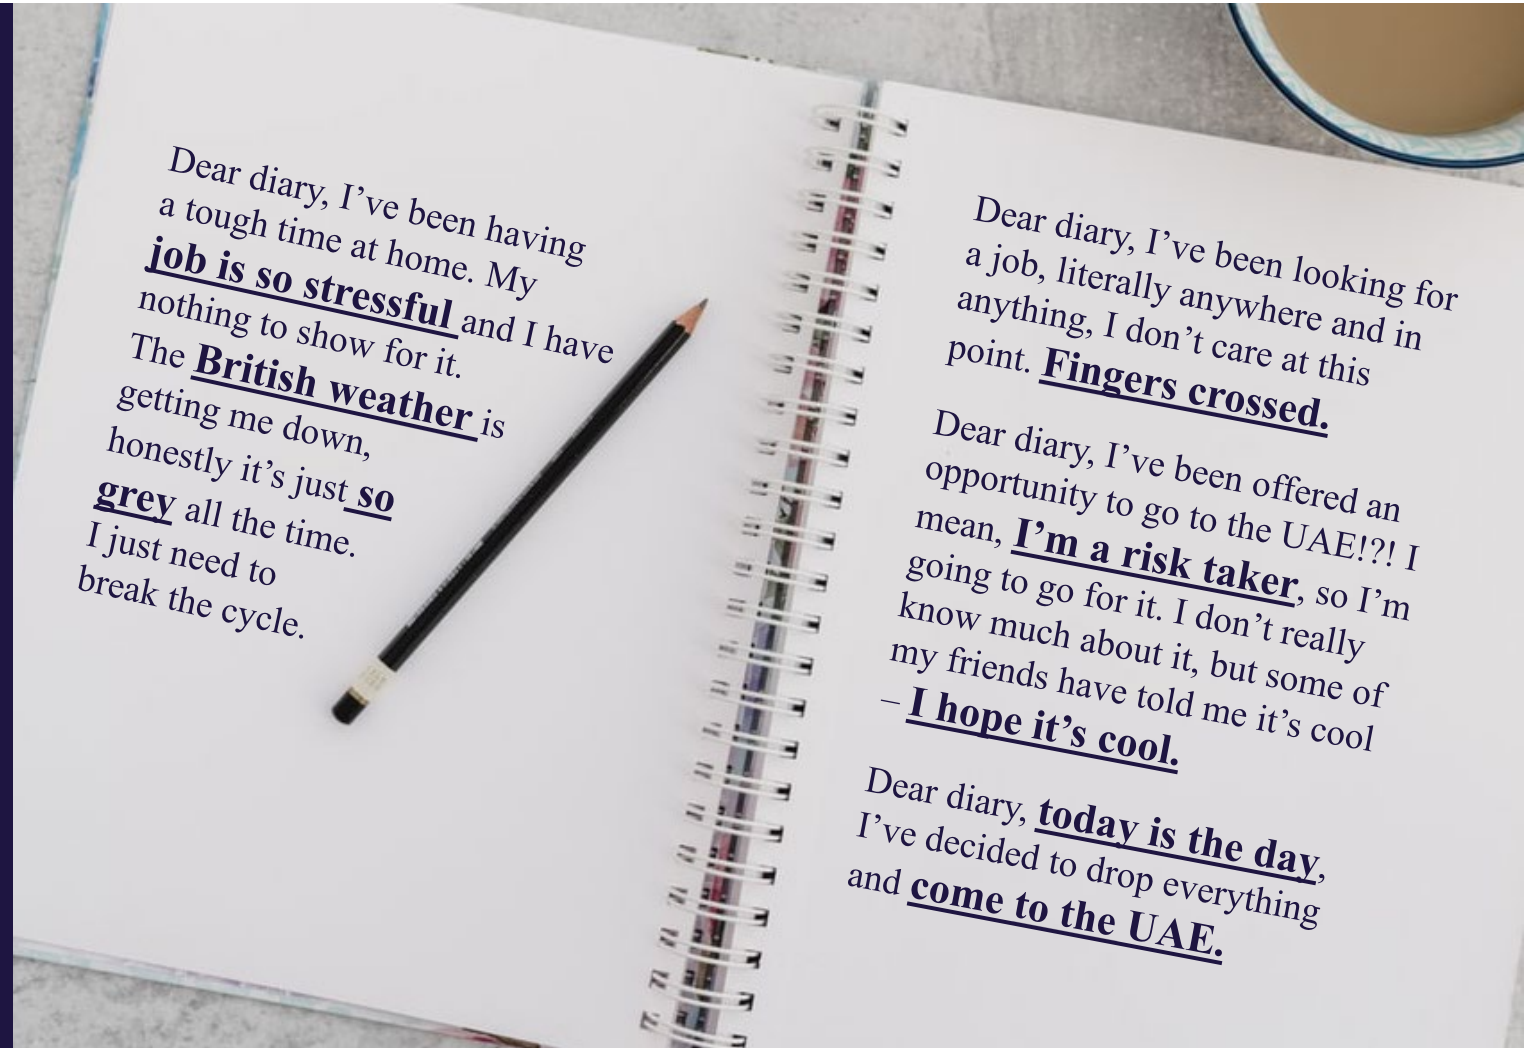 Dear diary, I’ve been having
a tough time at home. My
job is so stressful and I have
nothing to show for it.
The British weather is
getting me down,
honestly it’s just so
grey all the time.
I just need to
break the cycle.
Dear diary, I’ve been looking for
a job, literally anywhere and in
anything, I don’t care at this
point. Fingers crossed.
Dear diary, I’ve been offered an
opportunity to go to the UAE!?! I
mean, I’m a risk taker, so I’m
going to go for it. I don’t really
know much about it, but some of
my friends have told me it’s cool
– I hope it’s cool.
Dear diary, today is the day,
I’ve decided to drop everything
and come to the UAE.